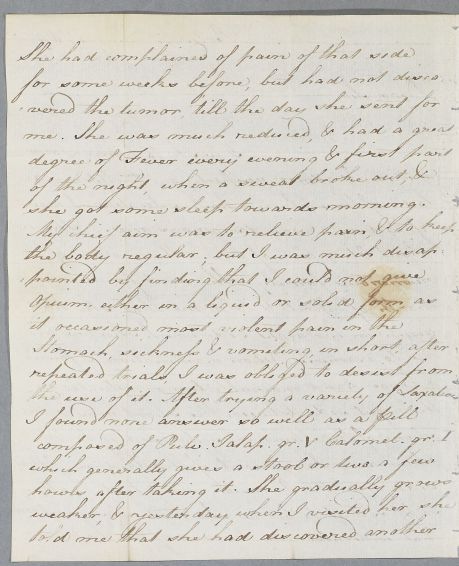 She had complained of pain of that side
for some weeks before, but had not disco
vered the tumor, till the day she sent for
me. She was much reduced, & had a great
degree of Fever every evening & first part
of the night, when a sweat broke out, &
she got some sleep towards morning.
My chief aim was to relieve pain & to keep
the body regular; but I was much disap
pointed by finding that I could not give
Opium either in a liquid or solid form, as
it occasioned most violent pain in the
Stomach, sickness & vomiting, in short, after
repeated trials, I was obliged to desist from
the use of it. After trying a variety of Laxatives
I found none answer so well as a Pill
composed of Pulv. Jalap. gr. V Calomel. gr. I
which generally gives a stool or two a few
hours after taking it. She gradually grows
weaker, & yesterday when I visited her, she
told me that she had discovered another